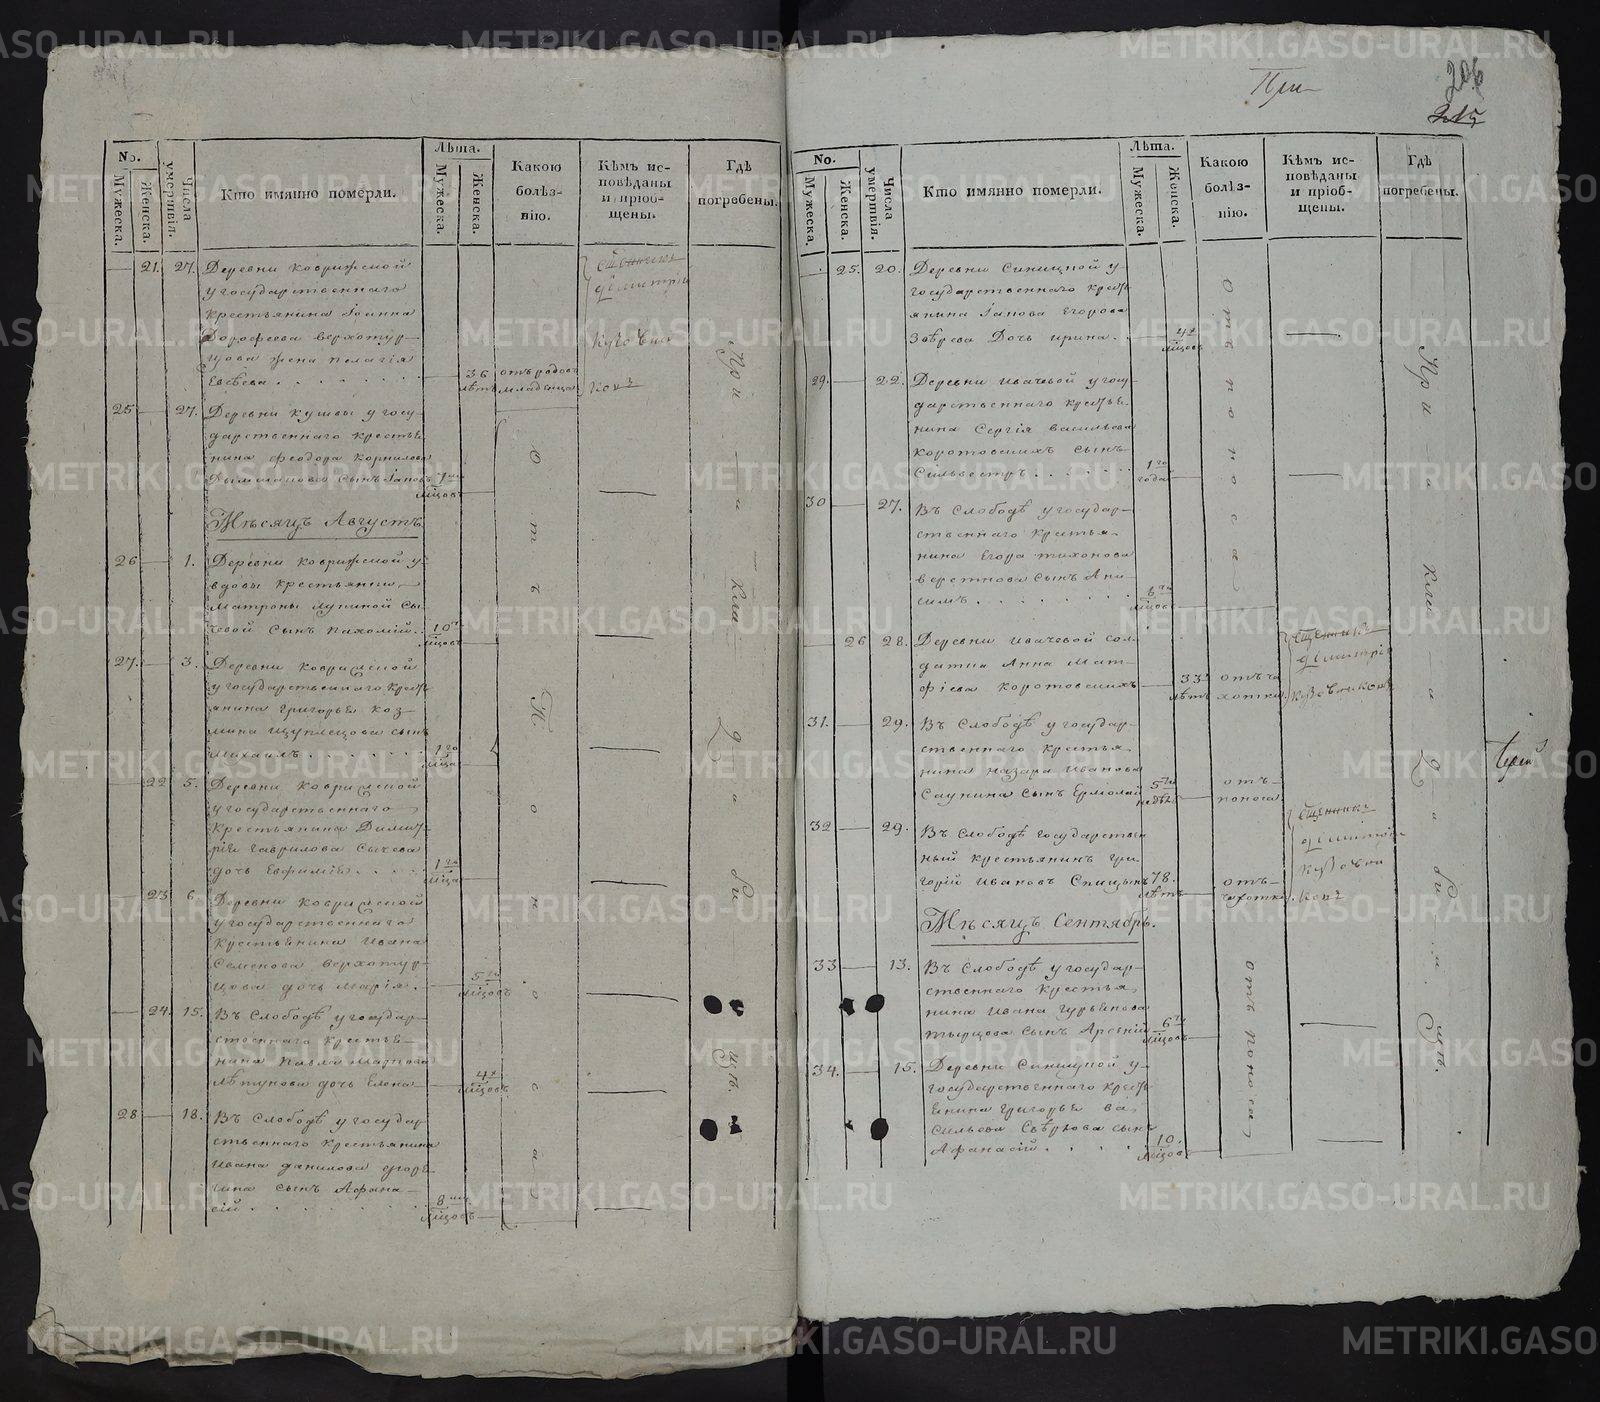 При
206
215
No.
Мужеска.
Женска.
Числа умертвія.
Кто имянно померли.
Лѣта.
Мужеска.
Женска.
Какою болѣз-
нію.
Кѣмъ ис-
повѣданы
и пріоб-
щены.
Гдѣ
погребены.
21. 27. Деревни Коврижской
у государственнаго
крестьянина Іоанна
Дорофеева Верхотур-
цова жена Пелагія
Евсѣева
36 лѣтъ
отъ родовъ младенца
Димитрій
25 27. Деревни Кушвы у госу-
дарственнаго крестьѣ-
нина Феодора Корнилова
сынъ Іановъ
мцовъ
Мѣсяцъ Августъ.
26 1. Деревни Коврижской у
вдовы крестьянки
Матроны Лупиной Сы-
чевой сынъ Пахомій
10 мцовъ
27. 3. Деревни Коврижской
у государственнаго кресть-
янина Григорья Коз-
мина Щуплецова сынъ
Михаилъ
1го мца
22 5. Деревни Коврижской
у государственнаго
крестьянина Димит-
рія Гаврилова Сычева
дочь Евфимія
1го мца
23 6. Деревни Коврижской
у государственнаго
крестьянина Ивана
Семенова Верхотур-
цова дочь Марія.
5ти мцовъ
24. 15. Въ Слободѣ у государ-
ственнаго крестьѣ-
нина Павла
Лѣтунова дочь Елена
4х мцовъ
28 18. Въ Слободѣ у государ-
ственнаго крестьянина
Ивана Данилова
сынъ Афана-
сій
8ми мцовъ
Отъ поноса
При кладбищѣ.
No.
Мужеска.
Женска.
Числа умертвія.
Кто имянно померли.
Лѣта.
Мужеска.
Женска.
Какою болѣз-
нію.
Кѣмъ ис-
повѣданы
и пріоб-
щены.
Гдѣ
погребены.
25. 20. Деревни Синицной у
государственнаго кресть-
янина Іанова Егорова
Звѣрева дочь Ирина.
4х мцовъ
29. 22. Деревни Ивачевой у госу-
дарственнаго крестьѣ-
нина Сергія Васильева
Коротовскихъ сынъ
Сильвестръ
1го года
30 27. Въ Слободѣ у государ-
ственнаго крестья-
нина Егора Тихонова
Веретнова сынъ Ани-
симъ
6ти мцовъ
Отъ поноса
26 28. Деревни Ивачевой сол-
датка Анна Мат-
фіева Коротовскихъ
33 лѣтъ
отъ ча-
хотки.
Димитрій
31. 29. Въ Слободѣ у государ-
ственнаго крестья-
нина Назара Иванова
Саунина сынъ Ермолай
5ти недѣль
отъ
поноса
32 29. Въ Слободѣ государствен-
ный крестьянинъ Гри-
горій Ивановъ Спицынъ
78. лѣтъ
отъ
чахотки.
Мѣсяцъ Сентябрь.
33 13. Въ Слободѣ у государ-
ственнаго крестья-
нина Ивана Гурьянова
сынъ Арсеній
6ти мцовъ
34. 15. Деревни Синицной у
государственнаго кресть-
ѣнина Григорья Ва-
сильева сынъ
Афанасій
10. мцовъ
отъ поноса
При кладбищѣ.
METRIKI.GASO-URAL.RU